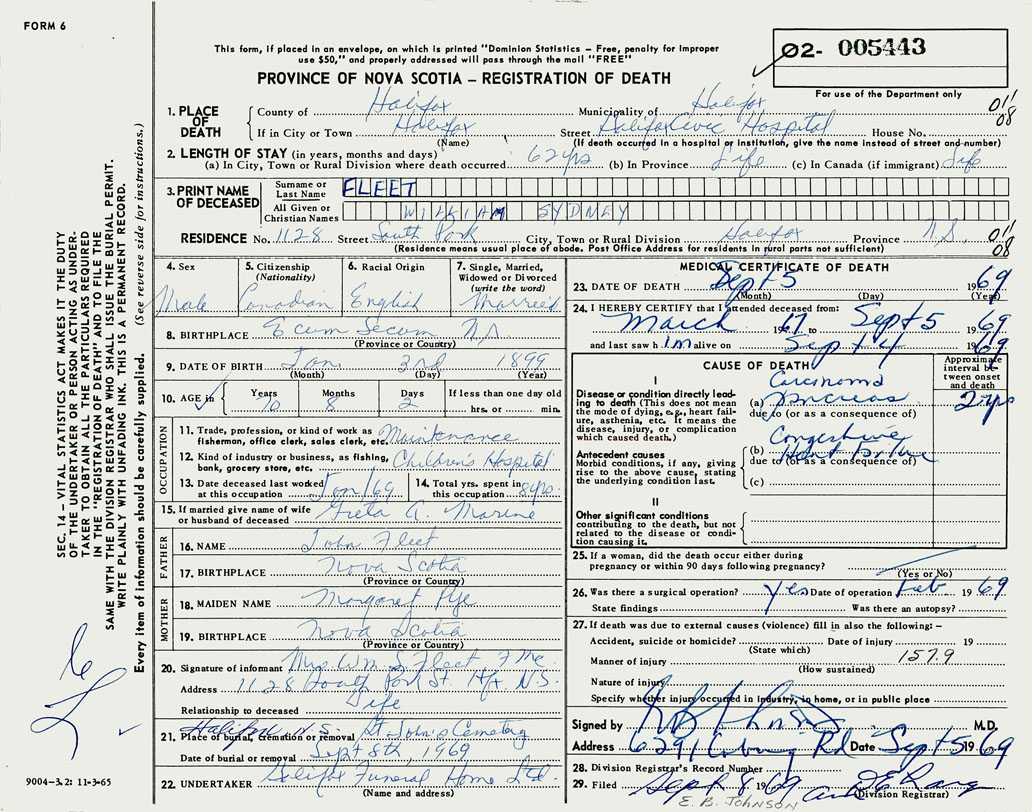 FORM 6
This form, if placed in an envelope, on which is printed "Dominion Statistics – Free, penalty for improper
use $50," and properly addressed will pass through the mail "FREE"
02- 005443
PROVINCE OF NOVA SCOTIA – REGISTRATION OF DEATH
For use of the Department only
1. PLACE OF DEATH
County of Halifax Municipality of Halifax 011
08
If in City or Town Halifax Street Halifax Civic Hospital House No.
(Name) (If death occurred in a hospital or institution, give the name instead of street and number)
2. LENGTH OF STAY (in years, months and days)
(a) In City, Town or Rural Division where death occurred 62 yrs (b) In Province Life (c) In Canada (if immigrant) Life
3. PRINT NAME OF DECEASED
Surname or Last Name FLEET
All Given or Christian Names WILLIAM SYDNEY
RESIDENCE No. 1128 Street South Park City, Town or Rural Division Halifax Province N.S 011
08
(Residence means usual place of abode. Post Office Address for residents in rural parts not sufficient)
4. Sex Male
5. Citizenship (Nationality) Canadian
6. Racial Origin English
7. Single, Married, Widowed or Divorced (write the word) Married
8. BIRTHPLACE Ecum Secum N.S
(Province or Country)
9. DATE OF BIRTH Jan 3rd 1899
(Month) (Day) (Year)
10. AGE in Years 70 Months 8 Days 2 If less than one day old hrs. or min.
OCCUPATION
11. Trade, profession, or kind of work as fisherman, office clerk, sales clerk, etc. Maintenance
12. Kind of industry or business, as fishing, bank, grocery store, etc. Children's Hospital
13. Date deceased last worked at this occupation Jan/69
14. Total yrs. spent in this occupation 8 yrs.
15. If married give name of wife or husband of deceased Greta A. Marine
FATHER
16. NAME John Fleet
17. BIRTHPLACE Nova Scotia
(Province or Country)
MOTHER
18. MAIDEN NAME Margaret Pye
19. BIRTHPLACE Nova Scotia
(Province or Country)
20. Signature of informant Mrs. Wm S Fleet
Address 1128 South Park St. Hfx. N.S.
Relationship to deceased Wife
Halifax N.S.
21. Place of burial, cremation or removal St John's Cemetery
Date of burial or removal Sept 8th, 1969
22. UNDERTAKER Halifax Funeral Home Ltd.
(Name and address)
MEDICAL CERTIFICATE OF DEATH
23. DATE OF DEATH Sept 5 1969
(Month) (Day) (Year)
24. I HEREBY CERTIFY that I attended deceased from:
March 1967 to Sept 5 1969
and last saw h im alive on Sept 4 1969
CAUSE OF DEATH
Approximate interval between onset and death
I
Disease or condition directly leading to death (This does not mean the mode of dying, e.g., heart failure, asthenia, etc. it means the disease, injury, or complication which caused death.)
Carcinoma
(a) Pancreas 2 yrs
due to (or as a consequence of)
Antecedent causes
Morbid conditions, if any, giving rise to the above cause, stating the underlying condition last.
Congestive
(b) Heart Failure
due to (or as a consequence of)
(c)
II
Other significant conditions contributing to the death, but not related to the disease or condition causing it.
25. If a woman, did the death occur either during pregnancy or within 90 days following pregnancy?
(Yes or No)
26. Was there a surgical operation? Yes Date of operation Feb. 1969
State findings Was there an autopsy?
27. If death was due to external causes (violence) fill in also the following: –
Accident, suicide or homicide? Date of injury 19
(State which)
Manner of injury 157.9
(How sustained)
Nature of injury
Specify whether injury occurred in industry, in home, or in public place
Signed by M.D.
Address 6291 Coburg Rd Date Sept 5 1969
28. Division Registrar's Record Number
29. Filed Sept 8 1969
(Division Registrar)
E. B. JOHNSON
SEC. 14 – VITAL STATISTICS ACT MAKES IT THE DUTY
OF THE UNDERTAKER OR PERSON ACTING AS UNDER-
TAKER TO OBTAIN ALL THE PARTICULARS REQUIRED
IN THE "REGISTRATION OF DEATH" AND TO FILE THE
SAME WITH THE DIVISION REGISTRAR WHO SHALL ISSUE THE BURIAL PERMIT.
WRITE PLAINLY WITH UNFADING INK. THIS IS A PERMANENT RECORD.
Every item of information should be carefully supplied. (See reverse side for instructions.)
9004-3.2: 11-3-65